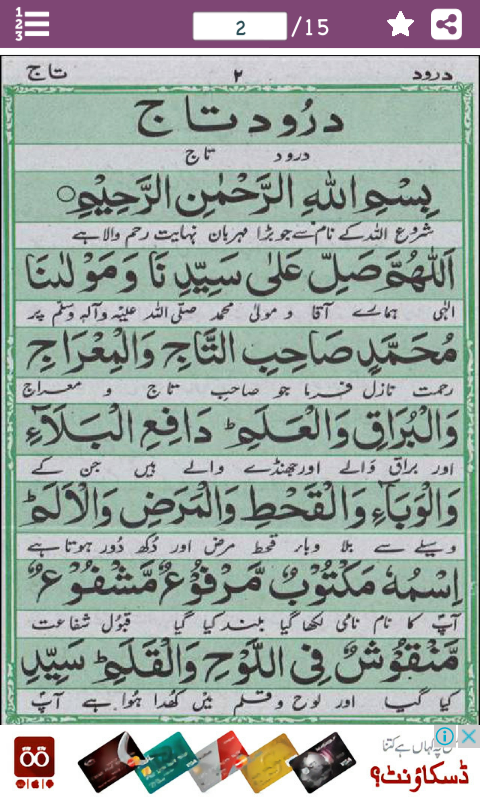 1
2
3
2 /15
درود
۲
تاج
دُرُود تاج
درود تاج
بِسْمِ اللهِ الرَّحْمٰنِ الرَّحِيْمِ
شروع اللہ کے نام سے جو بڑا مہربان نہایت رحم والا ہے
اَللّٰهُمَّ صَلِّ عَلٰى سَيِّدِ نَا وَمَوْلٰىنَا
الٰہی ہمارے آقا و مولیٰ محمد صلّی اللہ علیہ وآلہ وسلّم پر
مُحَمَّدٍ صَاحِبِ التَّاجِ وَالْمِعْرَاجِ
رحمت نازل فرما جو صاحب تاج و معراج
وَالْبُرَاقِ وَالْعَلَمِ ؕ دَافِعِ الْبَلَآءِ
اور براق والے اور جھنڈے والے ہیں جن کے
وَالْوَبَآءِ وَالْقَحْطِ وَالْمَرَضِ وَالْاَلَمِ ؕ
وسیلے سے بلا وباء قحط مرض اور دُکھ دُور ہوتا ہے
اِسْمُهٗ مَكْتُوْبٌ مَّرْفُوْعٌ مَّشْفُوْعٌ
آپؐ کا نام نامی لکھا گیا بلند کیا گیا قبول شفاعت
مَّنْقُوْشٌ فِى اللَّوْحِ وَالْقَلَمِ ؕ سَيِّدِ
کیا گیا اور لوح و قلم میں کھُدا ہُوا ہے آپؐ
کہاں ہے کتنا
ڈسکاؤنٹ؟
VISA